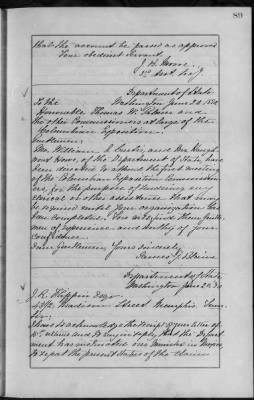 89
that the account be passed as approved
Your obedient Servant
J. B. Moore
3rd Asst. Secy.
Department of State
Washington June 24 1890
To the
Honorable Thomas W. Palmer and
the other Commissioners at large of the
Columbian Exposition.
Gentlemen;
Mr. William E. Curtis, and Mr.
and Howe, of the Department of State, have
been directed to attend the first meeting
of the Columbian Exposition Commission-
ers, for the purpose of rendering any
service or other assistance that may
be required until your organization has
been completed. You will find them gentle-
men of experience and worthy of your
confidence.
I am Gentlemen, Yours sincerely,
James G. Blaine
Department of State
Washington June 24, 90
J. R. Flippin Esqr.
Madison Street Memphis, Tenn.
Sir;
I have to acknowledge the receipt of your letter of
and to say in reply that the Depart-
ment has instructed our Minister in
to report the present status of the claim